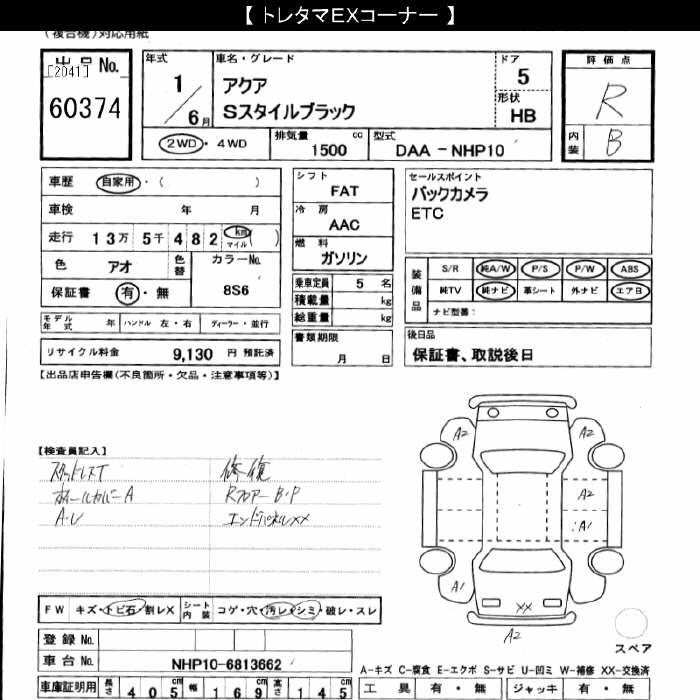 【 トレタマEXコーナー 】
(複合機)対応用紙
出品No.
[2041]
60374
年式
1／6月
車名・グレード
アクア
Sスタイルブラック
ドア
5
形状
HB
評価点
R
内装
B
2WD・4WD
排気量 cc
1500
型式
DAA－NHP10
車歴 自家用・( )
車検 年 月
走行 13万 5千 4 8 2 km マイル ( )
色 アオ
色替
カラーNo.
8S6
保証書 有・無
シフト
FAT
冷房
AAC
燃料
ガソリン
乗車定員 5 名
積載量 kg
総重量 kg
書類期限
月 日
セールスポイント
バックカメラ
ETC
装備品
S/R 純A/W P/S P/W ABS
純TV 純ナビ 革シート 外ナビ エアB
ナビ型番：
モデル年式 年 ハンドル 左・右 ディーラー・並行
後日品
保証書、取説後日
リサイクル料金 9,130 円 預託済
【出品店申告欄(不良箇所・欠品・注意事項等)】
【検査員記入】
スタッドレスT
ホールカバーA
A・U
修復
Rフロアー B・P
エンドパネルXX
A2
A2
A2
A1
A1
XX
A2
スペア
FW キズ・トビ石・割レX
シート内装 コゲ・穴・汚レ・シミ・破レ・スレ
登録No.
車台No. NHP10-6813662
車庫証明用 長さ 405cm 幅 169cm 高さ 145cm
A-キズ C-腐食 E-エクボ S-サビ U-凹ミ W-補修 XX-交換済
工具 有・無 ジャッキ 有・無